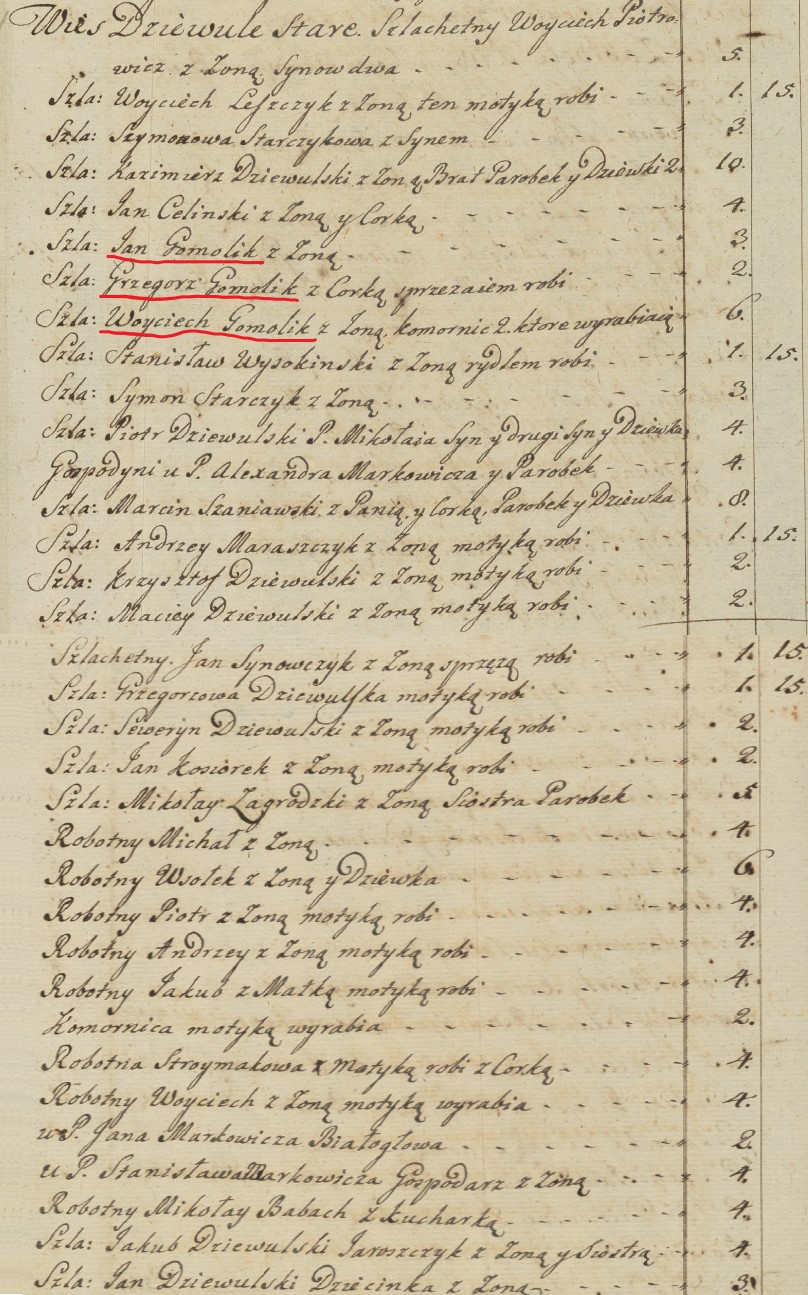 Wies Dziewule Stare. Szlachetny Woyciech Piotro-
wicz z Żoną Synow dwa 5.
Szla: Woyciech Leszczyk z Żoną ten motyką robi 1. 15.
Szla: Szymonowa Starczykowa z Synem 3.
Szla: Kazimierz Dziewulski z Żoną Brat Parobek y Dziewki 2. 10.
Szla: Jan Celinski z Żoną y Corką 4.
Szla: Jan Gomolik z Żoną 3.
Szla: Grzegorz Gomolik z Corką sprzezaiem robi 2.
Szla: Woyciech Gomolik z Żoną, komornic 2. ktore wyrabiaią 6.
Szla: Stanisław Wysokinski z Żoną rydlem robi 1. 15.
Szla: Symon Starczyk z Żoną 3.
Szla: Piotr Dziewulski P. Mikołaia Syn y drugi Syn y Dziewka 4.
Gospodyni u P. Alexandra Markowicza y Parobek 4.
Szla: Marcin Szaniawski z Panią y Corką, Parobek y Dziewka 8.
Szla: Andrzey Maraszczyk z Żoną motyką robi 1. 15.
Szla: Krzysztof Dziewulski z Żoną motyką robi 2.
Szla: Maciey Dziewulski z Żoną motyką robi 2.
Szlachetny Jan Synowczyk z Żoną sprzęzą robi 1. 15.
Szla: Grzegorzowa Dziewulska motyką robi 1. 15.
Szla: Seweryn Dziewulski z Żoną motyką robi 2.
Szla: Jan Kosiorek z Żoną motyką robi 2.
Szla: Mikołay Zagrodzki z Żoną Siostra Parobek 5
Robotny Michał z Żoną 4.
Robotny Wsołek z Żoną y Dziewka 6.
Robotny Piotr z Żoną motyką robi 4.
Robotny Andrzey z Żoną motyką robi 4.
Robotny Jakub z Matką motyką robi 4.
Komornica motyką wyrabia 2.
Robotna Stroymakowa z Motyką robi z Corką 4.
Robotny Woyciech z Żoną motyką wyrabia 4.
u P. Jana Markowicza Białogłowa 2.
u P. Stanisława Markowicza Gospodarz z Żoną 4.
Robotny Mikołay Babach z kucharką 4.
Szla: Jakub Dziewulski Jaroszczyk z Żoną y Siostrą 4.
Szla: Jan Dziewulski Dziecinka z Żoną 3.